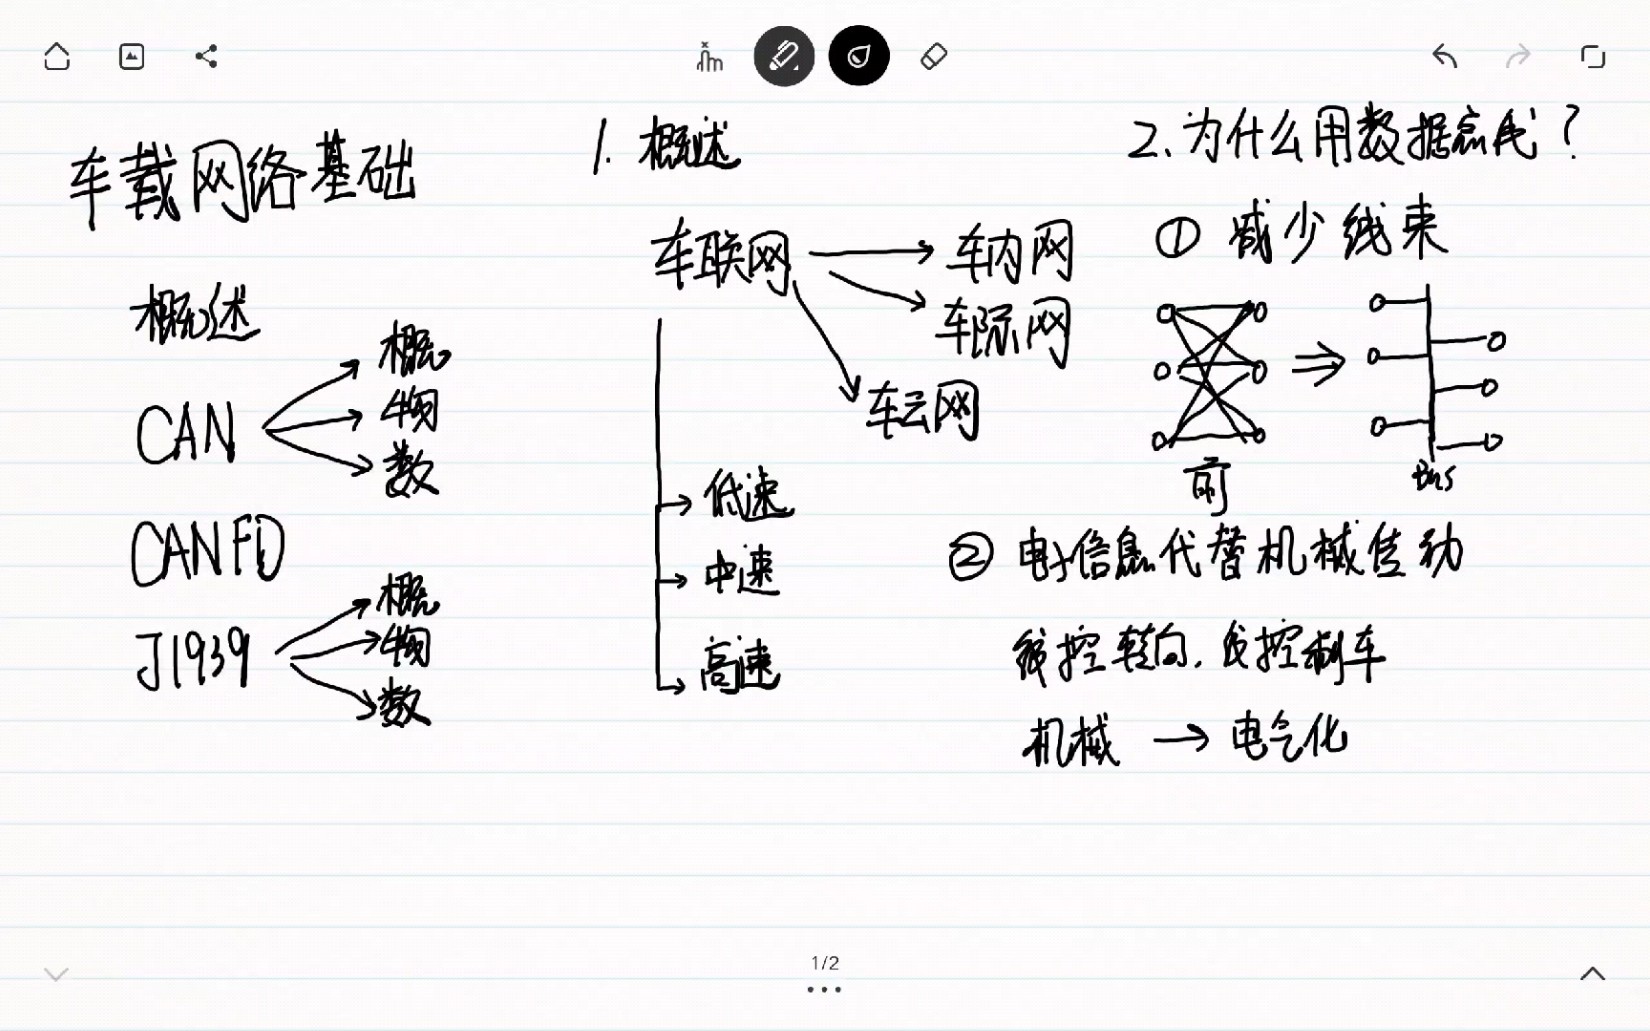 车载网络基础
概述
CAN
概
物
数
CANFD
J1939
概
物
数
1. 概述
车联网
车内网
车际网
车云网
低速
中速
高速
2. 为什么用数据总线?
① 减少线束
前
Bus
② 电子信息代替机械传动
线控转向, 线控制车
机械 → 电气化
1/2